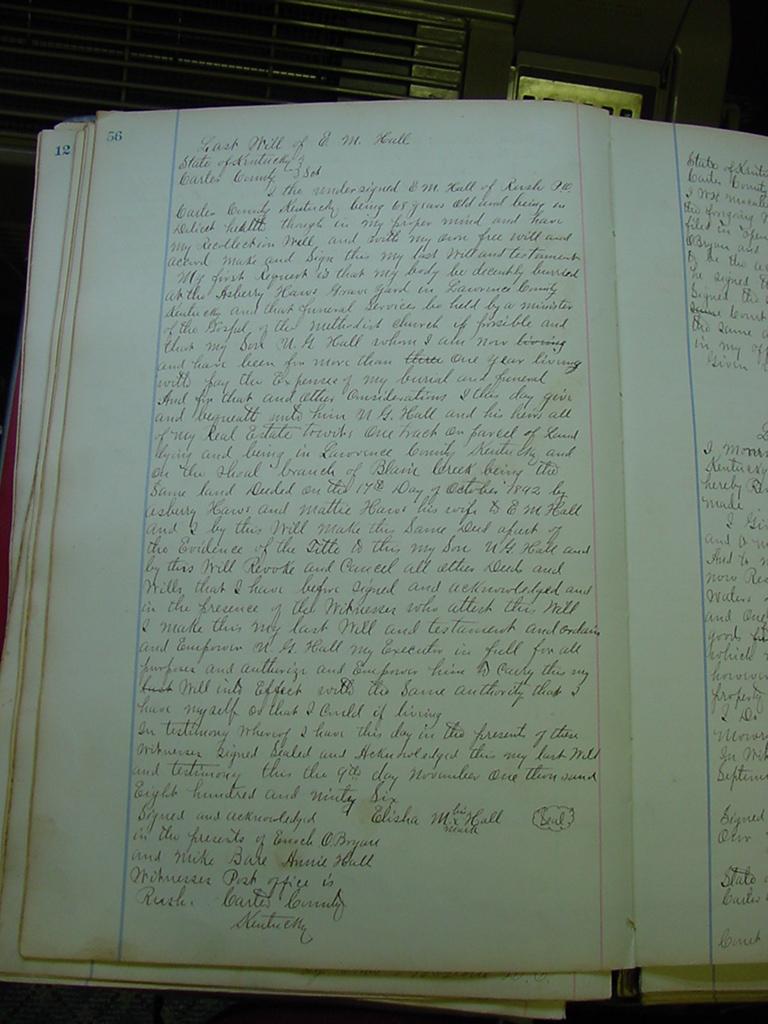 12
56
Last Will of E. M. Hall
State of Kentucky
Carter County Sct
I the undersigned E M. Hall of Rush P.O.
Carter County Kentucky being 68 years old and being in
Delict health though in my proper mind and have
my Recollection Well, and with my own free will and
accord make and Sign this my last Will and testament
My first Request is that my body be decently burried
at the Asberry Haws Grave yard in Lawrence County
Kentucky and that funeral Services be held by a minister
of the Gospel, of the Methodist church if possible and
that my Son U. G Hall whom I am now living
and have been for more than three One year living
with pay the Expenses of my burial and funeral
And for that and Other Considerations I this day give
and bequeath unto him U G. Hall and his heirs all
of my Real Estate towits One tract or parcel of Land
lying and being in Lawrence County Kentucky and
on the Shoal branch of Blain Creek being the
Same land Deeded on the 17th Day of October 1892 by
asberry Haws and Mattie Haws his wife to E M Hall
and I by this Will make this Same Deed apart of
the Evidence of the Title to this my Son U G Hall and
by this Will Revoke and Cancel all other Deed and
Wills that I have before signed and acknowledged and
in the presence of the Witnesses who attest this Will
I make this my last Will and testament and ordain
and Empower U G. Hall my Executor in full for all
purposes and autherize and Empower him to Carry this my
last Will into Effect with the Same authority that I
have myself or that I Could if living
In testimony Whereof I have this day in the presents of these
Witnesses signed Sealed and Acknowledged this my last Will
and testimony this the 9th day November One thousand
Eight hundred and ninty Six
Signed and acknowledged Elisha M. his x mark Hall (Seal)
in the presents of Enoch O'Bryan
and Mike Bare Annie Hall
Witnesses Post office is
Rush. Carter County
Kentucky
State of
Carter County
I
the foregoing
filed in open
O'Bryan and
to be the
he signed
Signed the
Same Court
the Same
in my
Given
I
Kentucky
hereby
made
I
and
And to
now
Waters
and One
goods
which
however
property
I Do
In
Septem
Signed
Our
State
Carter
Court